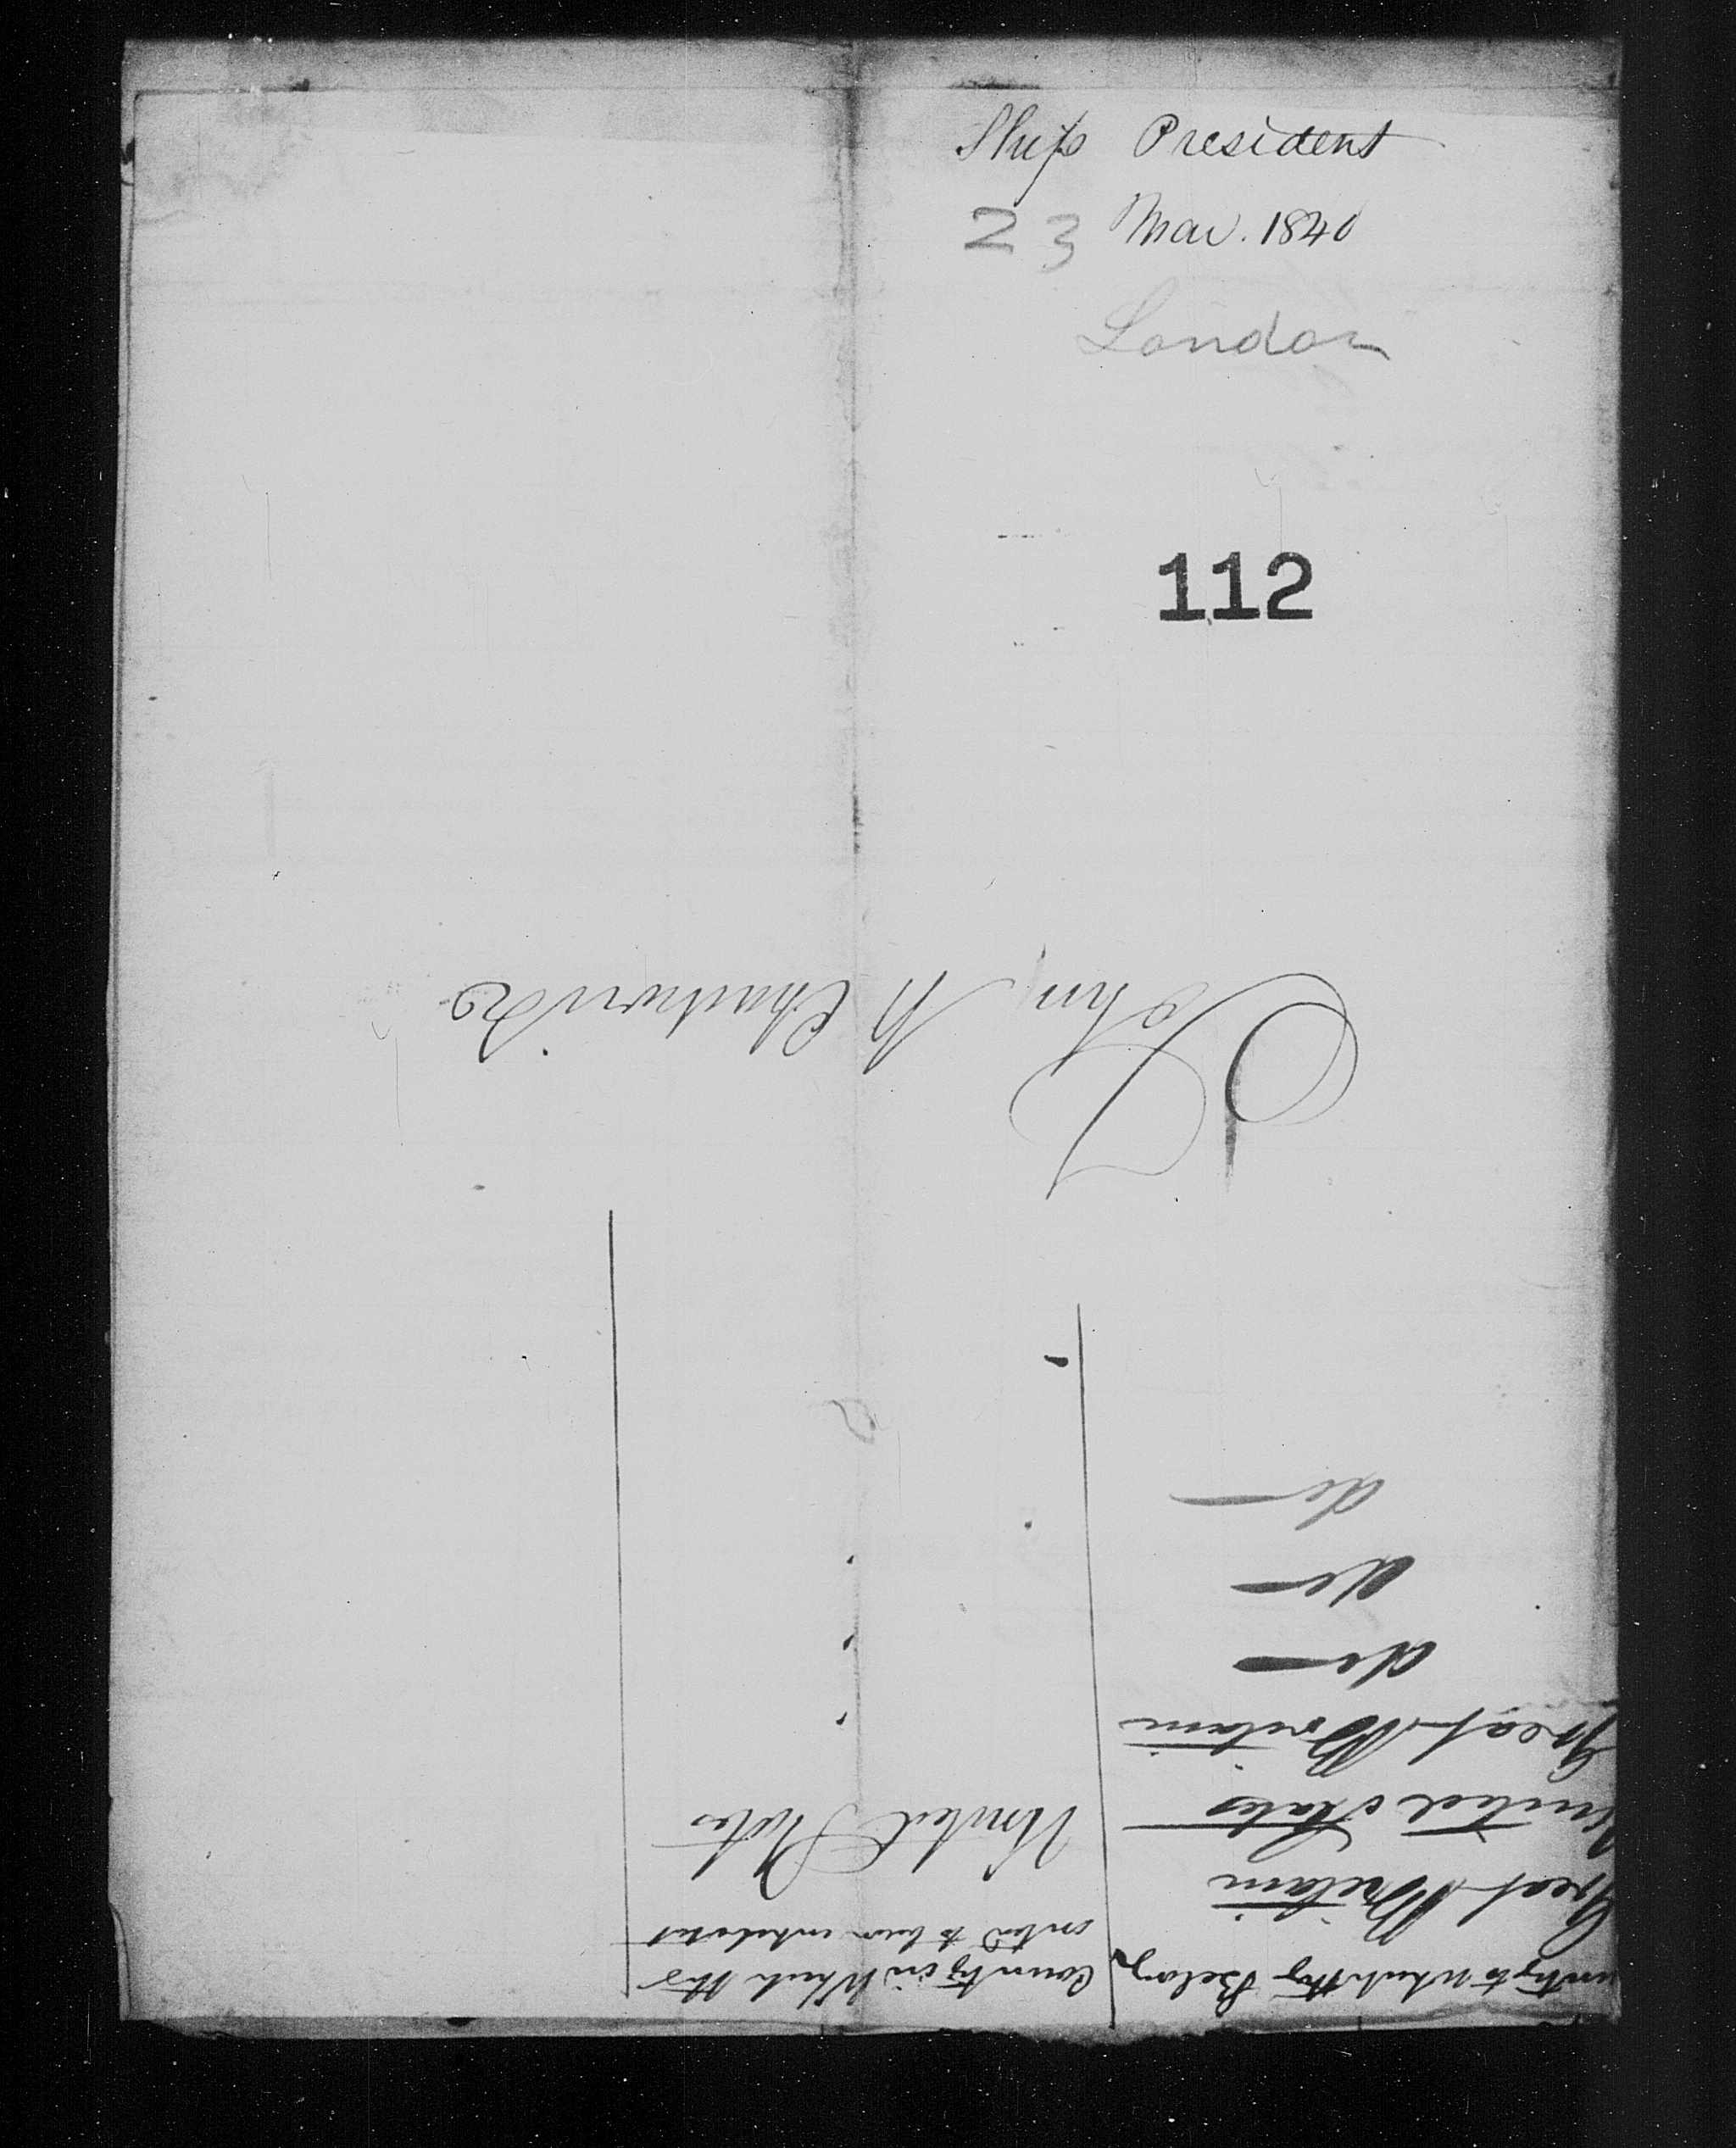 Ship President
23 Mar. 1840
London
112
untry to which they Belong
Country in Which they
intend to become inhabitants
Great Britain
United States
United States
Great Britain
do
do
do
John M Chadwick